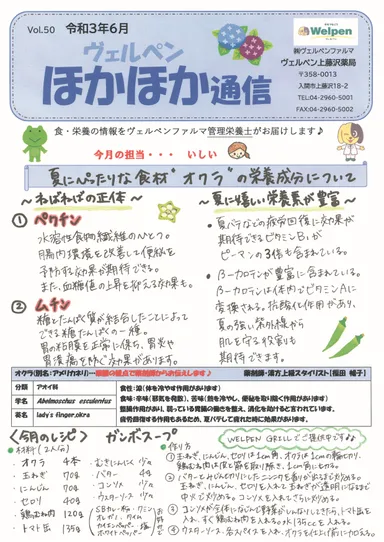 Vol.50 令和3年6月
Welpen
ヴェルペン
ほかほか通信
㈱ヴェルペンファルマ
ヴェルペン上藤沢薬局
〒358-0013
入間市上藤沢18-2
TEL:04-2960-5001
FAX:04-2960-5002
食・栄養の情報をヴェルペンファルマ管理栄養士がお届けします♪
今月の担当・・・ いしい
夏にぴったりな食材“オクラ”の栄養成分について
～ねばねばの正体～
① ペクチン
水溶性食物繊維のひとつ。
腸内環境を改善して便秘を
予防する効果が期待できる。
また、血糖値の上昇を抑える効果も。
② ムチン
糖とたんぱく質が結合したことによって
できる糖たんぱくの一種。
胃の粘膜を正常に保ち、胃炎や
胃潰瘍を防ぐ効果があります。
～夏に嬉しい栄養素が豊富～
・夏バテなどの疲労回復に効果が
期待できるビタミンB₁が
ピーマンの3倍も含まれている。
・β-カロテンが豊富に含まれている。
β-カロテンは体内でビタミンAに
変換される。抗酸化作用があり、
夏の強い紫外線から
肌を守る役割も
期待できます。
オクラ(別名:アメリカネリ)…
薬剤師・漢方上級スタイリスト【福田 帷子】
分類 アオイ科
学名 Abelmoschus esculentus
英名 lady's finger,okra
食性:涼(体を冷やす作用があります)
食味:辛味(邪気を発散)、苦味(熱を冷やし、便秘を取り除く作用があります)
整腸作用があり、弱っている胃腸の働きを整え、消化を助けると言われています。
疲労回復する作用もあるため、夏バテして疲れた時に効果があります。
〈今月のレシピ〉 ガンボスープ
WELPEN GRILLでご提供中ですよ
材料(2人分)
・オクラ 4本
・玉ねぎ 70g
・にんじん 70g
・セロリ 40g
・鶏むね肉 120g
・トマト缶 135g
・むきにんにく 少々
・バター 4g
・コンソメ 少々
・ウスターソース 少々
作り方